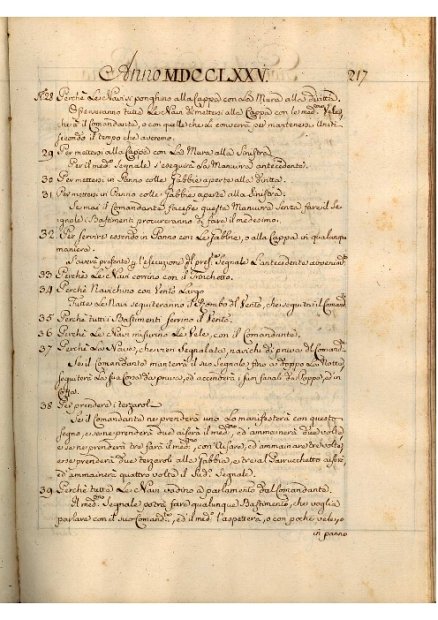 Anno MDCCLXXV. 217
N.º 28 Perchè Le Navi si ponghino alla Cappa con La Mura alla diritta.
Osserveranno tutte Le Navi di mettersi alla Cappa con le med.me Vele,
che il Comandante, o con quelle che li converrà per mantenersi Unite
secondo il tempo che averono.
29 Per mettersi alla Cappa con La Mura alla Sinistra
Per il med.mo segnale s'eseguirà La Manuvra antecedente.
30 Per mettersi in Panno colle Gabbie aperte alla Diritta.
31 Per mettersi in Panno colle Gabbie aperte alla Sinistra.
Se mai il Comandante facesse questa Manuvra senza fare il Se-
gnale i Bastimenti procureranno di fare il medesimo.
32 Per servire essendo in Panno con Le Gabbie, o alla Cappa in qualunq.
maniera.
S'averà presente p. l'esecuzione del pres.te Segnale L'antecedente
33 Perchè Le Navi corrino con il Trinchetto.
34 Perchè Navichino con Vento Largo
Tutte Le Navi seguiteranno il Rombo del Vento, che seguita il Comand.te
35 Perchè tutti i Bastimenti serrino il Vento.
36 Perchè Le Navi misurino Le Vele, con il Comandante.
37 Perchè La Nave, che vien Segnalata, navichi di prua del Comand.te
Se il Comandante manterrà il suo Segnale fino a doppo La Notte
seguiterà La sua Corsa di prua, ed accenderà i suoi fanali da Poppa, ed in
Coffa.
38 Per prendere i terzaroli
Se il Comandante ne prenderà uno Lo manifesterà con questo
segno, e se ne prenderà due alserà il med.mo, ed ammainerà due volte
e se ne prenderà tre farà il med.mo, con Alsare, ed ammainare tre volte,
e se prenderà due terzaroli alle Gabbie, e tre al Parrucchetto alserà,
ed ammainerà quattro volte il Sud.o Segnale.
39 Perchè tutte Le Navi vadino a parlamento dal Comandante.
Il med.mo Segnale potrà fare qualunque Bastimento, che voglia
parlare con il suo Comand.te, ed il med.mo l'aspetterà, o con poche vele, o
in panno